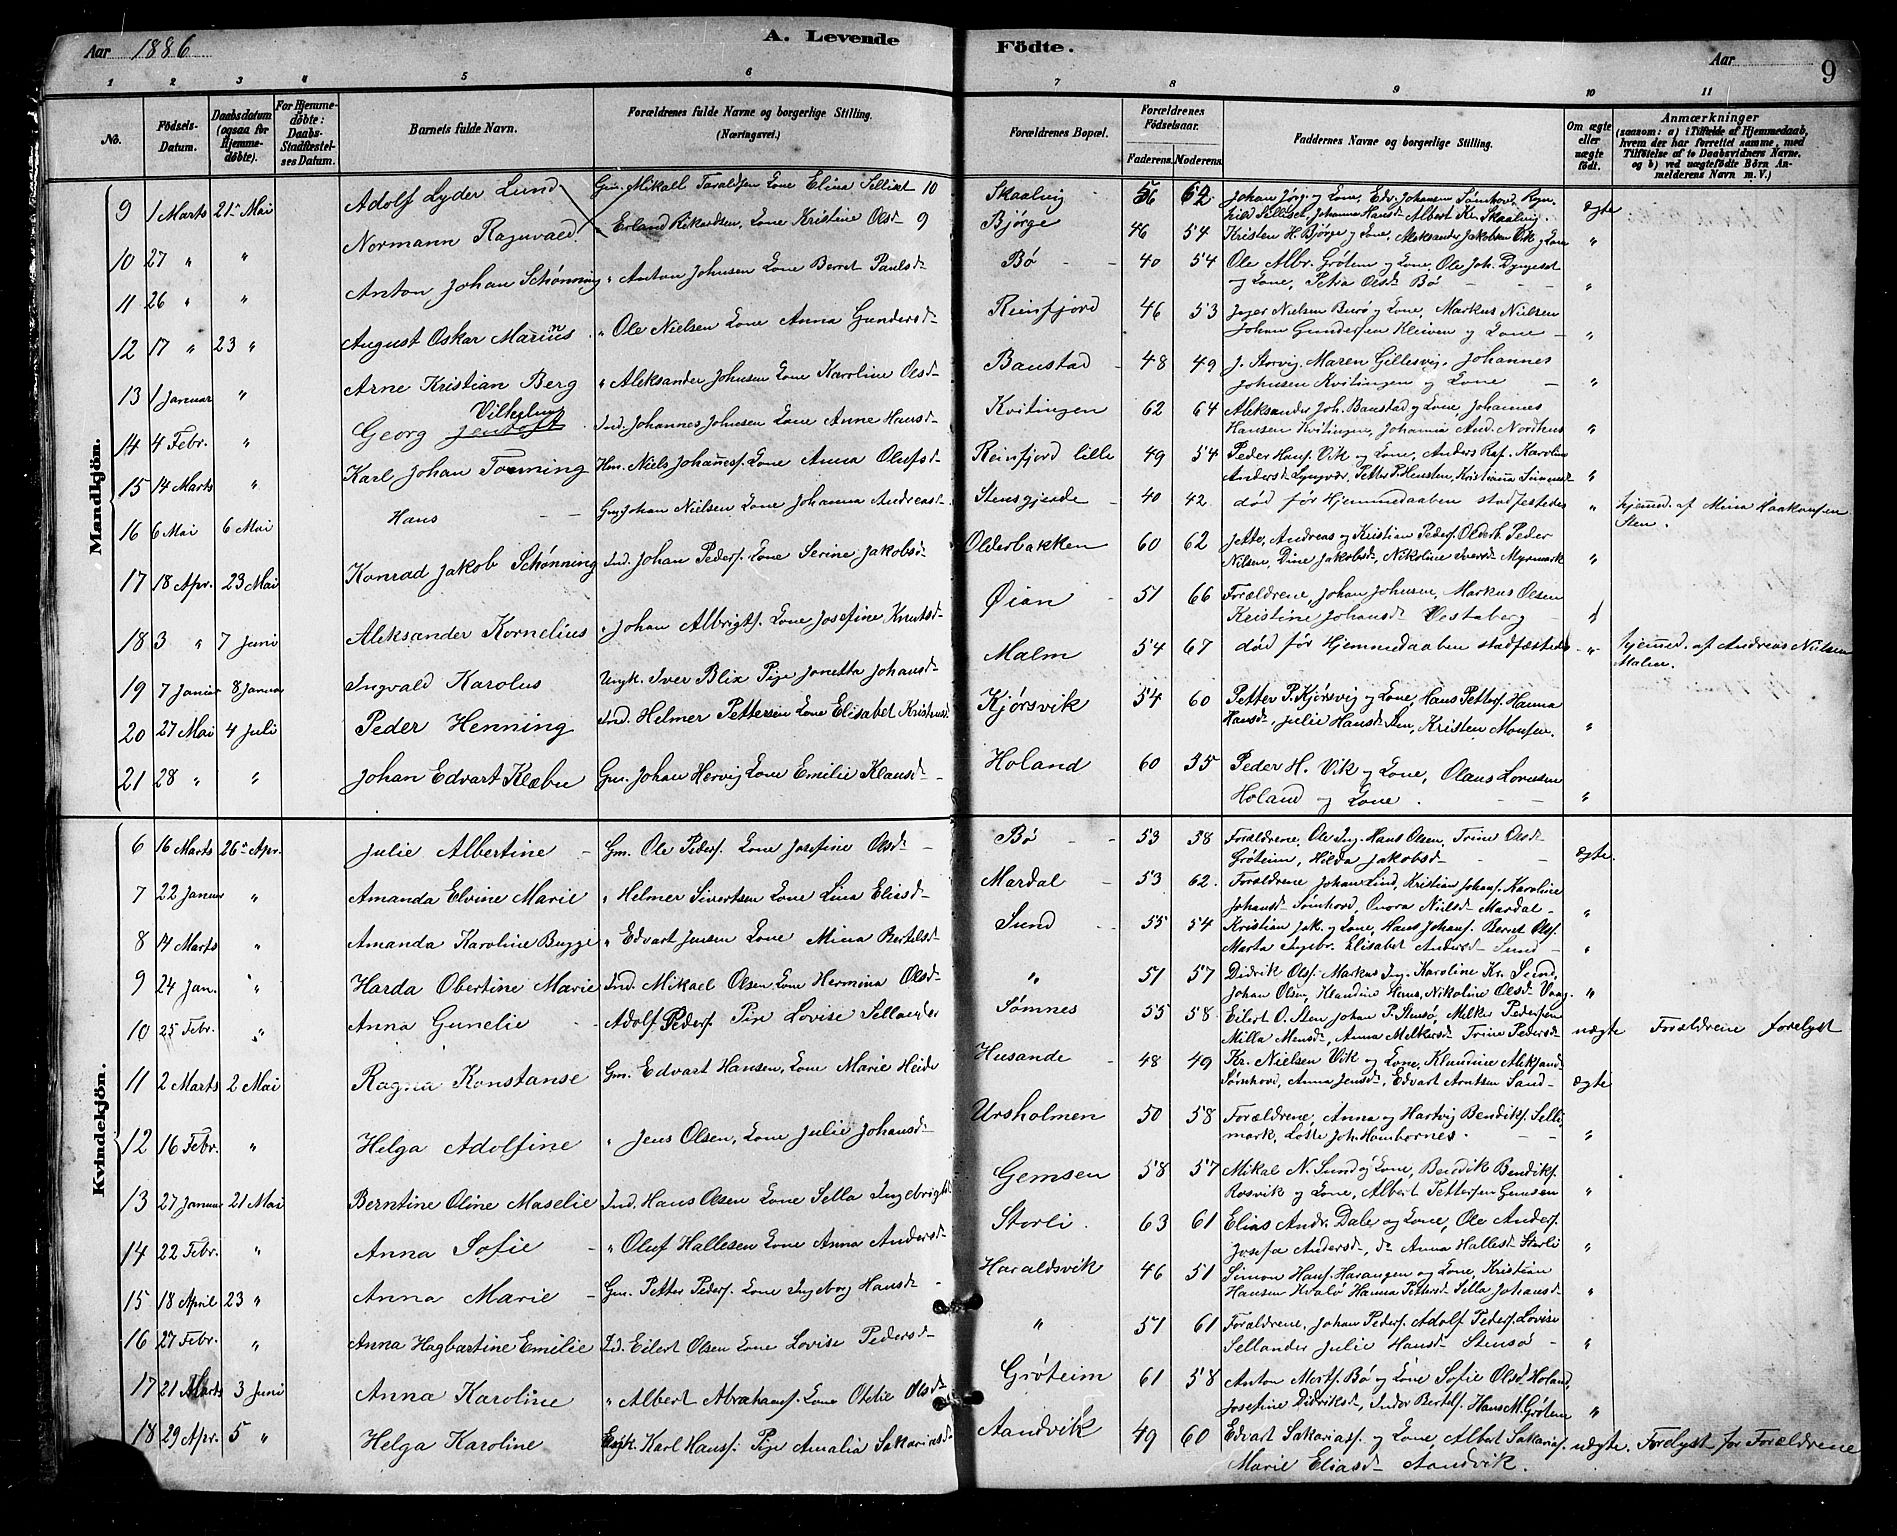 Aar 1886
A. Levende
Födte.
Aar
9
1 2 3 4 5 6 7 8 9 10 11
No.
Födsels-Datum.
Daabsdatum (ogsaa for Hjemmedöbte).
For Hjemmedöbte: Daabs-Stadfæstelses Datum.
Barnets fulde Navn.
Forældrenes fulde Navne og borgerlige Stilling. (Næringsvei.)
Forældrenes Bopæl.
Forældrenes Födselsaar.
Faderens. Moderens.
Faddernes Navne og borgerlige Stilling.
Om ægte eller uægte födt.
Anmærkninger
(saasom: a) i Tilfælde af Hjemmedaab, hvem der har forrettet samme, med Tilföielse af to Daabsvidners Navne, og b) ved uægtefödte Börn Anmelderens Navn m. V.)
Mandkjön.
9 1 Marts 21 Mai Adolf Lyder Lund Gm. Mikael Taraldsen Kone Elina Sellist 10 Skaalvig 56 62 Johan Jörg. og Kone, Edv. Johansen Sømhovd, Albert Kr. Skaalvig. ægte
10 27 " " Normann Ragnvald " Erland Rikardsen, Kone Kristine Olsd 9 Bjørge 46 54 Kristen H. Bjørge og Kone, Aleksander Jakobsen Vik og Kone "
11 26 " " Anton Johan Schønning " Anton Johnsen Kone Bernt Paulsd Bø 40 54 Ole Albr. Grøtem og Kone, Ole Joh. Dyngeset og Kone, Petra Olsd Bø "
12 17 " 23 " August Oskar Marius " Ole Nielsen Kone Anna Gundersd Reinfjord 46 53 Nielsen Burø og Kone, Markus Nielsen Johan Gundersen Kleiven og Kone "
13 1 Januar " Arne Kristian Berg " Aleksander Johnsen Kone Karoline Olsd Baustad 48 49 J. Storvig, Maren Gillesvig, Johannes Johnsen Kvitingen og Kone "
14 4 Febr. " Georg Vilhelm Jentoft Ind. Johannes Johnsen Kone Anne Hansd Kvitingen 62 64 Aleksander Joh. Baustad og Kone, Johannes Hansen Kvitingen, Johanna And. Nordhus "
15 14 Marts " Karl Johan Tønning Hm. Niels Johannesf. Kone Anna Olufsd Reinfjord lille 49 54 Peder Hansf. Vik og Kone, Anders Raf. Karoline Andersd Lyngvær, Petter P. Hensten, Kristianna "
16 6 Mai 6 Mai Hans Gm. Johan Nielsen Kone Johanna Andreasd Stensgjerde 40 42 død før Hjemmedaaben stadfestedes " hjemmed. af Mina Haakonsen Sten.
17 18 Apr. 23 Mai Konrad Jakob Schønning Ind. Johan Pedersf. Kone Serine Jakobsd Olderbakken 60 62 Jette, Andreas og Kristian Pedersf. Olderb. Peder Nilsen, Dine Jakobsd, Nikoline Iversd Myrmark "
18 3 " 7 Juni Aleksander Kornelius " Johan Albrigtsf. Kone Josefine Knutsd Øian 51 66 Forældrene, Johan Johnsen, Markus Olsen Kristine Johansd Vestaberg
19 7 Januar 8 Januar Ingvald Karolus Ungk. Iver Blix Pige Jonetta Johansd Malm 54 67 død før Hjemmedaaben stadfæstedes " hjemmed. af Andreas Nielsen Malm.
20 27 Mai 4 Juli Peder Henning Ind. Helmer Pettersen Kone Elisabet Kristensd Kjørsvik 54 60 Petter P. Kjørsvig og Kone, Hans Pettersf. Hanna Hansd, Julie Hansd Sten, Kristen Monsen. "
21 28 " " Johan Edvart Klæbu Gm. Johan Hervig Kone Emilie Klausd Holand 60 35 Peder H. Vik og Kone, Olaus Lorensen Holand og Kone. "
Kvindekjön.
6 16 Marts 26 Apr. Julie Albertine Gm. Ole Pedersf. Kone Josefine Olsd Bø 53 58 Forældrene, Ole Ing. Hans Olsen, Trine Olsd Grøteim, Hilda Jakobsd ægte
7 22 Januar " Amanda Elvine Marie " Helmer Sivertsen Kone Lina Eliasd Mardal 53 62. Forældrene Johan Lind, Kristian Johansf. Karoline Johansd Sømhovd, Nielsd Mardal "
8 14 Marts " Amanda Karoline Bugge " Edvart Jensen Kone Mina Bertelsd Sund 55 54 Kristian Jak. og Kone, Hans Johansf. Bernt Olsf. Marta Ingebr. Elisabet Andersd Sund "
9 24 Jan. " Harda Obertine Marie Ind. Mikael Olsen, Kone Hermina Olsd " 51 57 Didrik Olsf. Markus Ing. Karoline Kr. Sund, Johan Olsen, Klandine Hans, Nikoline Olsd Vaag. "
10 25 Febr. " Anna Gunelie Adolf Pedersf. Pige Lovise Sellander Sømnes 55 58 Eilert O. Sten, Johan P. Stensø, Melker Pedersen Milla Monsd, Anna Melkersd Trine Pedersd uægte Forældrene forelyst
11 2 Marts 2 Mai Ragna Konstanse Gm. Edvart Hansen, Kone Marie Heide Husande 48 49 Kr. Nielsen Vik og Kone, Klandine Aleksand. Sømhovd, Anna Jensd, Edvart Arntsen Sand ægte
12 16 Febr. " Helga Adolfine " Jens Olsen, Kone Julie Johansd Ursholmen 50 58 Forældrene, Anna og Hartvig Bendiksf. Sellimark, Lotte Joh. Hambornes. "
13 27 Januar 21 Mai Berntine Oline Maselie Ind. Hans Olsen Kone Sella Ingebrigtsd Gemsen 58 57 Mikal N. Sund og Kone, Bendik Bendiksf. Rosvik og Kone, Albert Pettersen Gemsen "
14 22 Febr. " Anna Sofie " Oluf Hallesen Kone Anna Andersd Storli. 63 61 Elias Andr. Dale og Kone, Ole Andersf. Josefa Andersd, do Anna Hallesd Storli "
15 18 April 23 " Anna Marie Gm. Petter Pedersf. Kone Ingeborg Hansd Haraldsvik 46 51 Simon Hansf. Harangen og Kone, Kristian Hansen Kvalø Hanna Pettersd Sella Johansd "
16 27 Febr. " Anna Hagbartine Emilie Ind. Eilert Olsen Kone Lovise Pedersd " 51 61 Forældrene, Johan Pedersf. Adolf Pedersf. Lovise Sellander Julie Hansd Stensø "
17 21 Marts 3 Juni Anna Karoline " Albert Abrahamsf. Kone Otelie Olsd Grøteim 61 58 Anton Mortsf. Bø og Kone Sofie Olsd Holand, Josefine Didriksd, Inder Bertelsf. Hans M. Grøtem "
18 29 Apr. 5 " Helga Karoline Ungk. Karl Hansf. Pige Amalia Sakariasd Aandvik 49 60 Edvart Sakariasf. og Kone, Albert Sakariasf. Marie Eliasd Aandvik. uægte. Forelyst for Forældrene